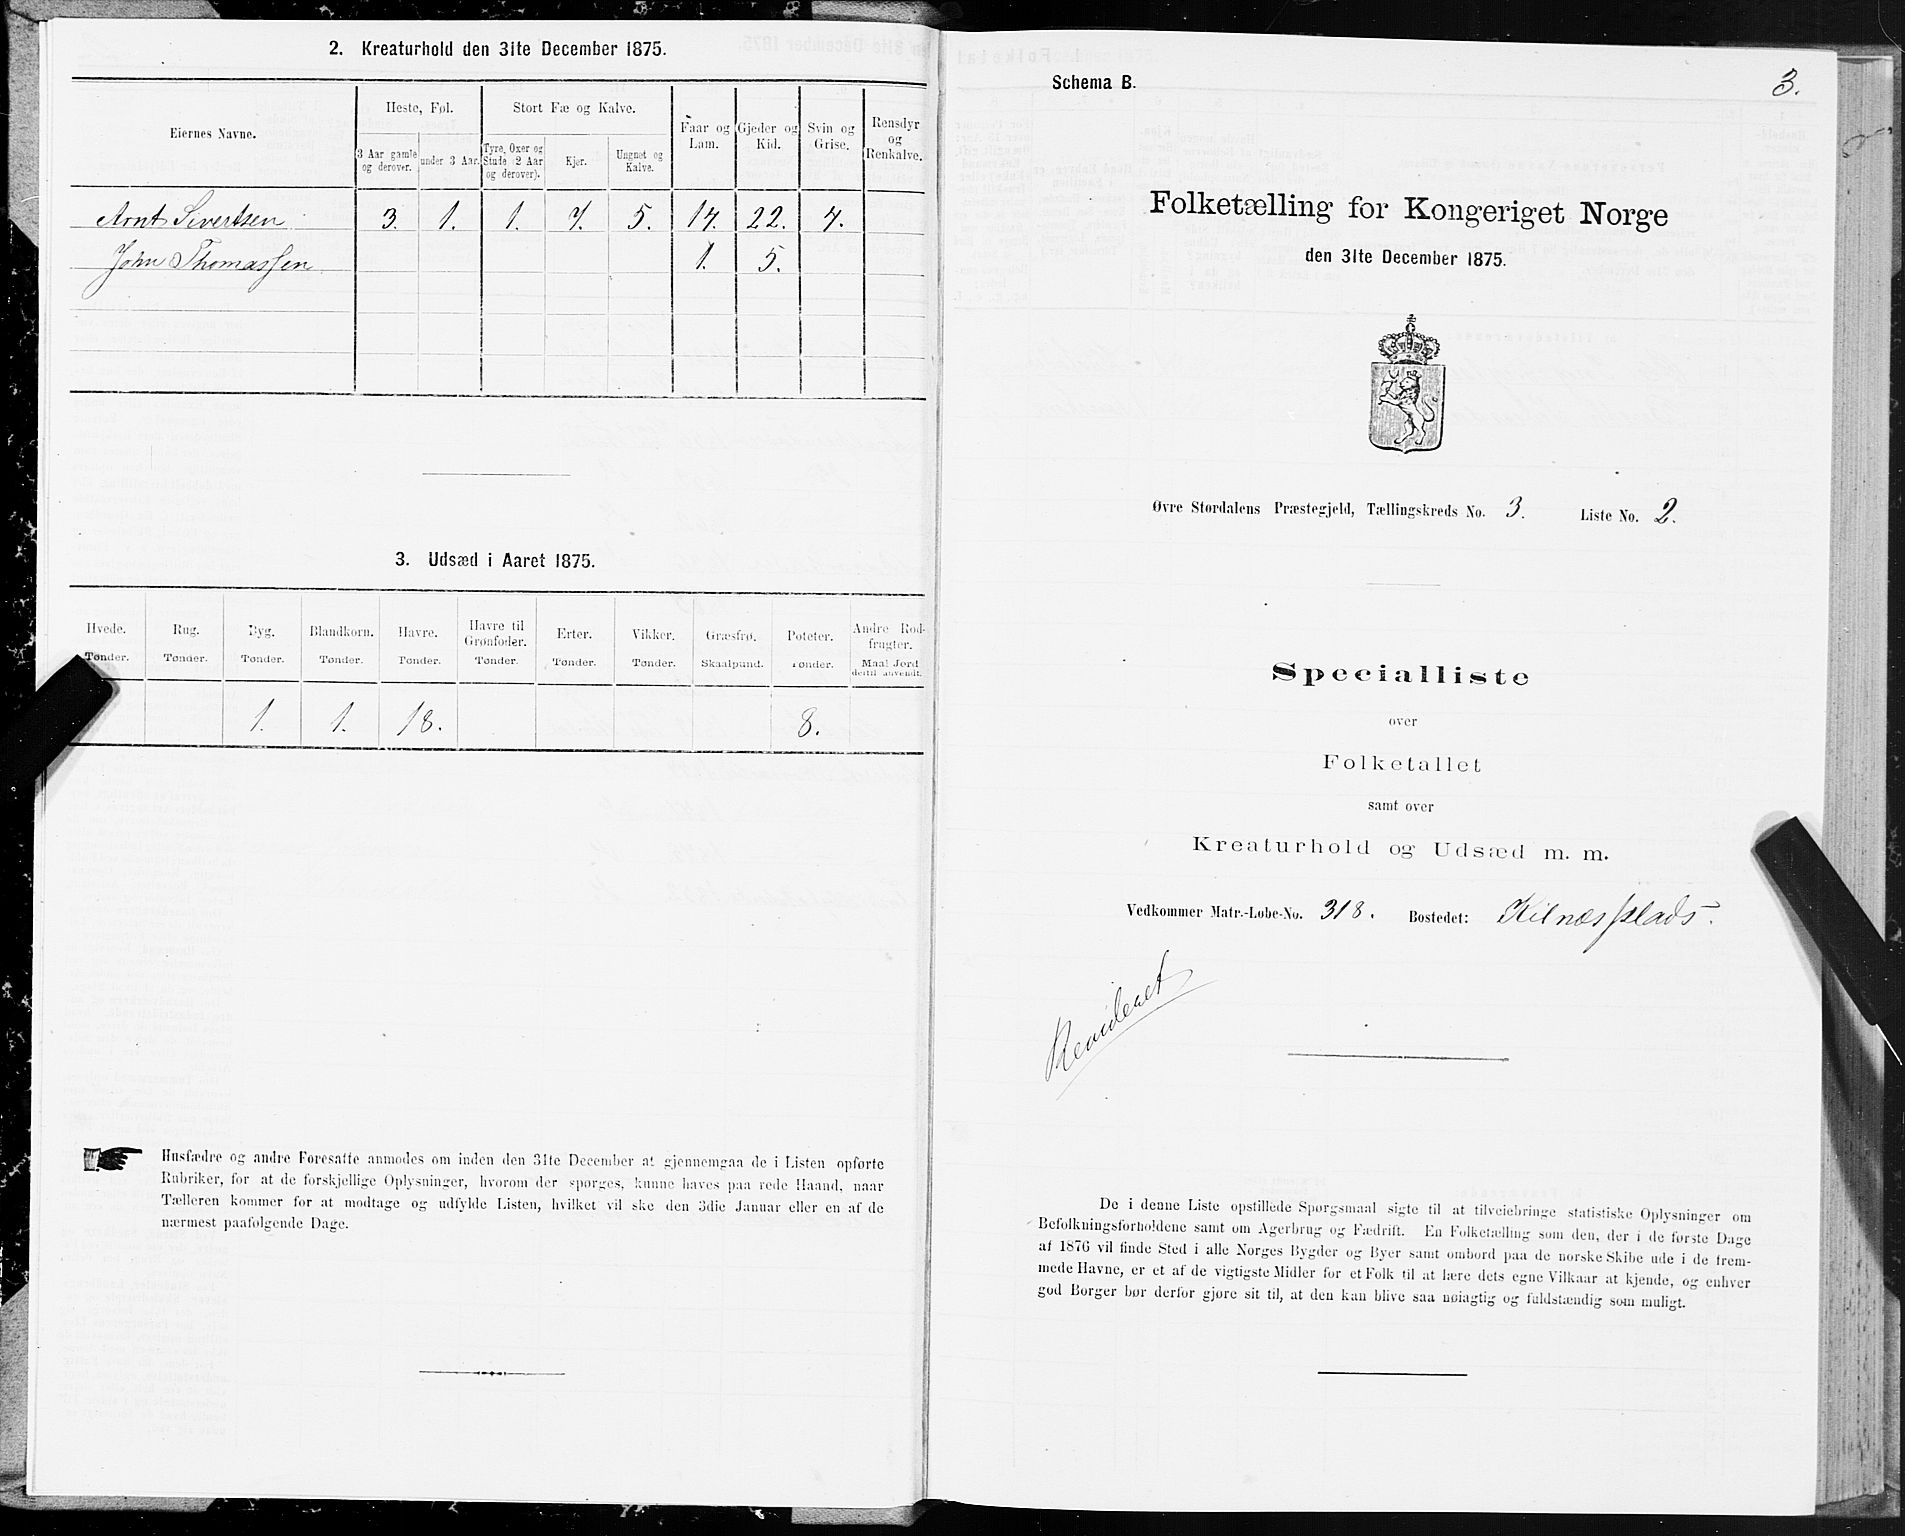 2. Kreaturhold den 31te December 1875.
Eiernes Navne.
Heste, Føl.
Stort Fæ og Kalve.
Faar og Lam.
Gjeder og Kid.
Svin og Grise.
Rensdyr og Renkalve.
3 Aar gamle og derover.
under 3 Aar.
Tyre, Oxer og Stude (2 Aar og derover).
Kjør.
Ungnøt og Kalve.
Arnt Sivertsen 3. 1. 1. 7. 5. 14. 22. 4.
John Thomassen 1. 5.
3. Udsæd i Aaret 1875.
Hvede. Rug. Byg. Blandkorn. Havre. Havre til Grønfoder. Erter. Vikker. Græsfrø. Poteter. Andre Rodfrugter.
Tønder. Tønder. Tønder. Tønder. Tønder. Tønder. Tønder. Tønder. Skaalpund. Tønder. Maal Jord dertil anvendt.
1. 1. 18. 8.
Husfædre og andre Foresatte anmodes om inden den 31te December at gjennemgaa de i Listen opførte
Rubriker, for at de forskjellige Oplysninger, hvorom der spørges, kunne haves paa rede Haand, naar
Tælleren kommer for at modtage og udfylde Listen, hvilket vil ske den 3die Januar eller en af de
nærmest paafølgende Dage.
Schema B.
3.
Folketælling for Kongeriget Norge
den 31te December 1875.
Øvre Stordalens Præstegjeld, Tællingskreds No. 3. Liste No. 2.
Specialliste
over
Folketallet
samt over
Kreaturhold og Udsæd m. m.
Vedkommer Matr.-Løbe-No. 318. Bostedet: Kilnæsplads.
Revideret
De i denne Liste opstillede Spørgsmaal sigte til at tilveiebringe statistiske Oplysninger om
Befolkningsforholdene samt om Agerbrug og Fædrift. En Folketælling som den, der i de første Dage
af 1876 vil finde Sted i alle Norges Bygder og Byer samt ombord paa de norske Skibe ude i de frem-
mede Havne, er et af de vigtigste Midler for et Folk til at lære dets egne Vilkaar at kjende, og enhver
god Borger bør derfor gjøre sit til, at den kan blive saa nøiagtig og fuldstændig som muligt.